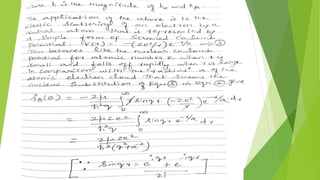 where k is the magnitude of k₀ and k_p.
The application of the above is to the
elastic scattering of an electron by a
neutral atom that is represented by
a simple form of screened Coulomb
potential V(r) = -(ze²/r) e^(-r/a) → ③
This behaves like the nuclear Coulomb
potential for atomic number z when r is
small and falls off rapidly when r is large
in comparison with the "radius" a of the
atomic electron cloud that screens the
nuclear substitution of eqn ③ in eqn ② give
f_B(θ) = -2μ/ħ²q ∫₀^∞ r sin qr (-ze²/r) e^(-r/a) dr
= 2μze²/ħ²q ∫₀^∞ sin qr e^(-r/a) dr
= 2μze²/ħ²(q²+a⁻²)
[∵ sin qr = e^(iqr) + e^(iqr) / 2i ]